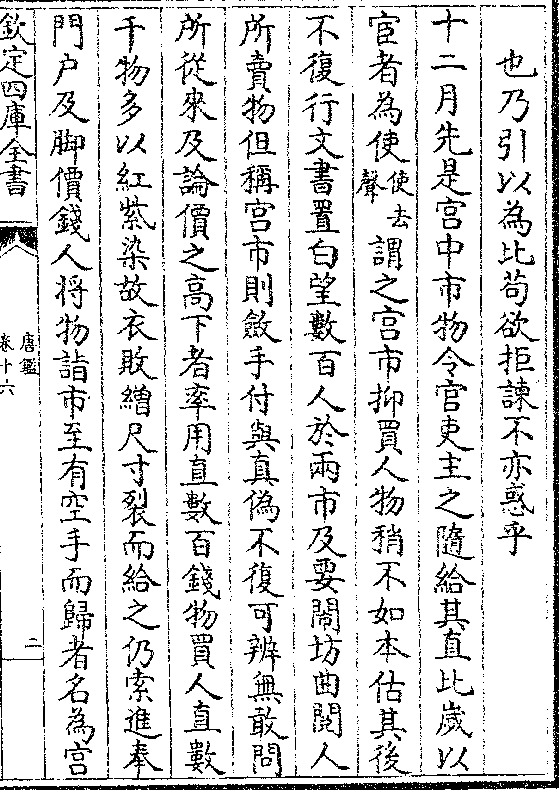 也乃引以為比苟欲拒諫不亦惑乎
十二月先是宫中市物令官吏主之隨給其直比歲以
宦者為使使去聲謂之宫市抑買人物稍不如本估其後
不復行文書置白望數百人於兩市及要閙坊曲閲人
所賣物但稱宫市則斂手付與真偽不復可辨無敢問
所從來及論價之高下者率用直數百錢物買人直數
千物多以紅紫染故衣敗繒尺寸裂而給之仍索進奉
門户及脚價錢人將物詣市至有空手而歸者名為宫
欽定四庫全書
唐鑑
卷十六
二